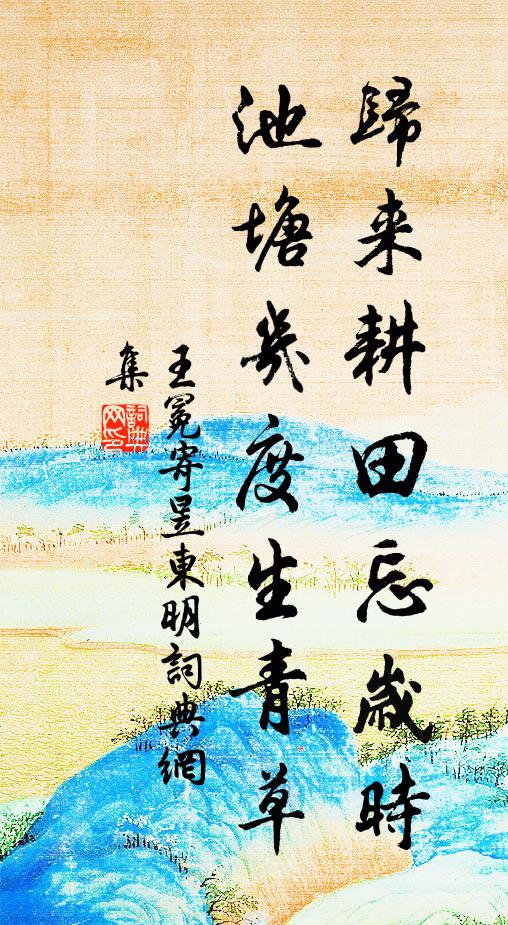 歸来耕田忘歲時
池塘幾度生青草
王冕寄昱東明詞典網
集
詞典网印